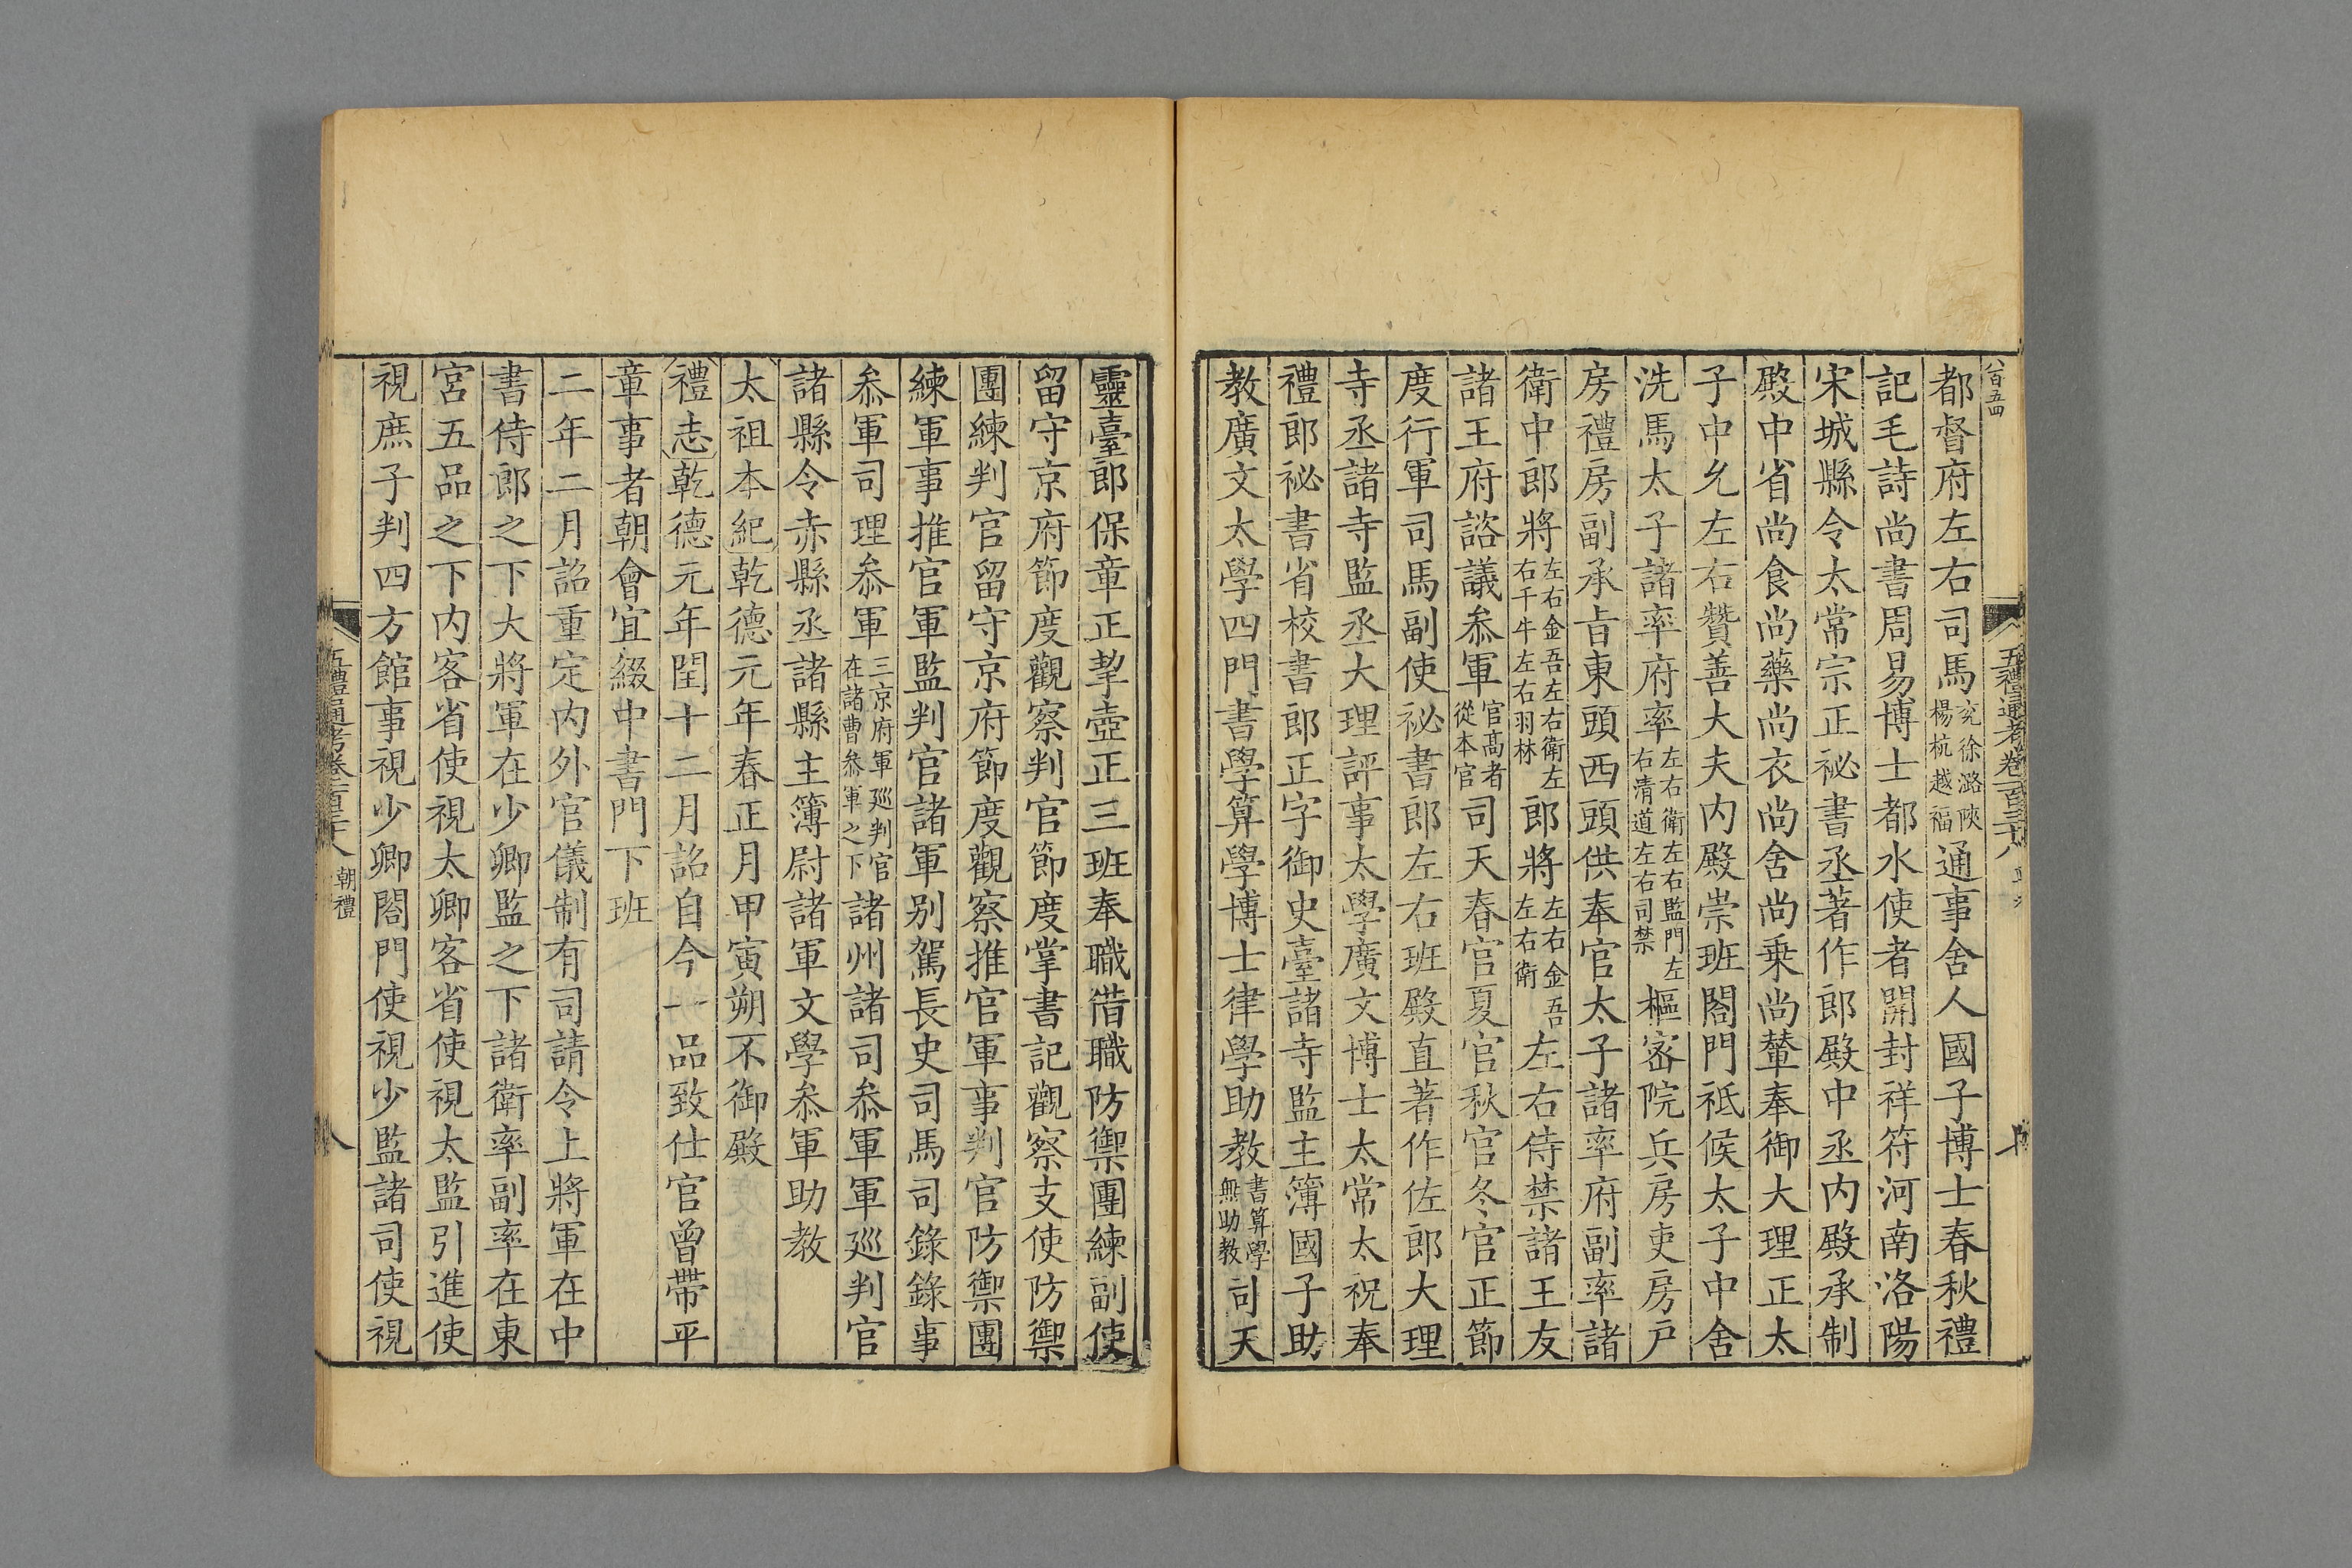 八百五四
都督府左右司馬兖徐潞陜楊杭越福通事舍人國子博士春秋禮
記毛詩尚書周易博士都水使者開封祥符河南洛陽
宋城縣令太常宗正祕書丞著作郎殿中丞内殿承制
殿中省尚食尚藥尚衣尚舍尚乗尚輦奉御大理正太
子中允左右贊善大夫内殿崇班閤門祗候太子中舍
洗馬太子諸率府率左右衛左右監門左右清道左右司禁樞密院兵房吏房戸
房禮房副承旨東頭西頭供奉官太子諸率府副率諸
衛中郎將左右金吾左右衛左右千牛左右羽林郎將左右金吾左右衛左右侍禁諸王友
諸王府諮議叅軍官髙者從本官司天春官夏官秋官冬官正節
度行軍司馬副使祕書郎左右班殿直著作佐郎大理
寺丞諸寺監丞大理評事太學廣文博士太常太祝奉
禮郎祕書省校書郎正字御史臺諸寺監主簿國子助
教廣文太學四門書學算學博士律學助教書算學無助教司天
靈臺郎保章正挈壺正三班奉職借職防禦團練副使
留守京府節度觀察判官節度掌書記觀察支使防禦
團練判官留守京府節度觀察推官軍事判官防禦團
練軍事推官軍監判官諸軍别駕長史司馬司錄錄事
叅軍司理叅軍三京府軍廵判官在諸曹叅軍之下諸州諸司叅軍軍廵判官
諸縣令赤縣丞諸縣主簿尉諸軍文學叅軍助教
太祖本紀乾德元年春正月甲寅朔不御殿
禮志乾德元年閏十二月詔自今一品致仕官曾帶平
章事者朝會宜綴中書門下班
二年二月詔重定内外官儀制有司請令上將軍在中
書侍郎之下大將軍在少卿監之下諸衛率副率在東
宮五品之下内客省使視太卿客省使視太監引進使
視庶子判四方館事視少卿閤門使視少監諸司使視
五禮通考卷一百三十八 朝禮
八